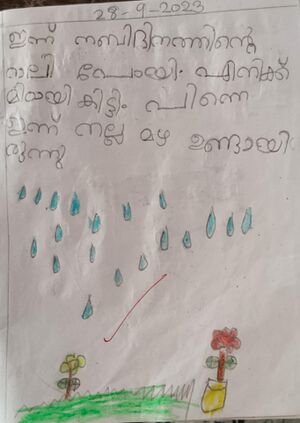 28-9-2023
ഇന്ന് നബിദിനത്തിന്റെ
റാലി പോയി. എനിക്ക്
മിഠായി കിട്ടി. പിന്നെ
ഇന്ന് നല്ല മഴ ഉണ്ടായി
രുന്നു